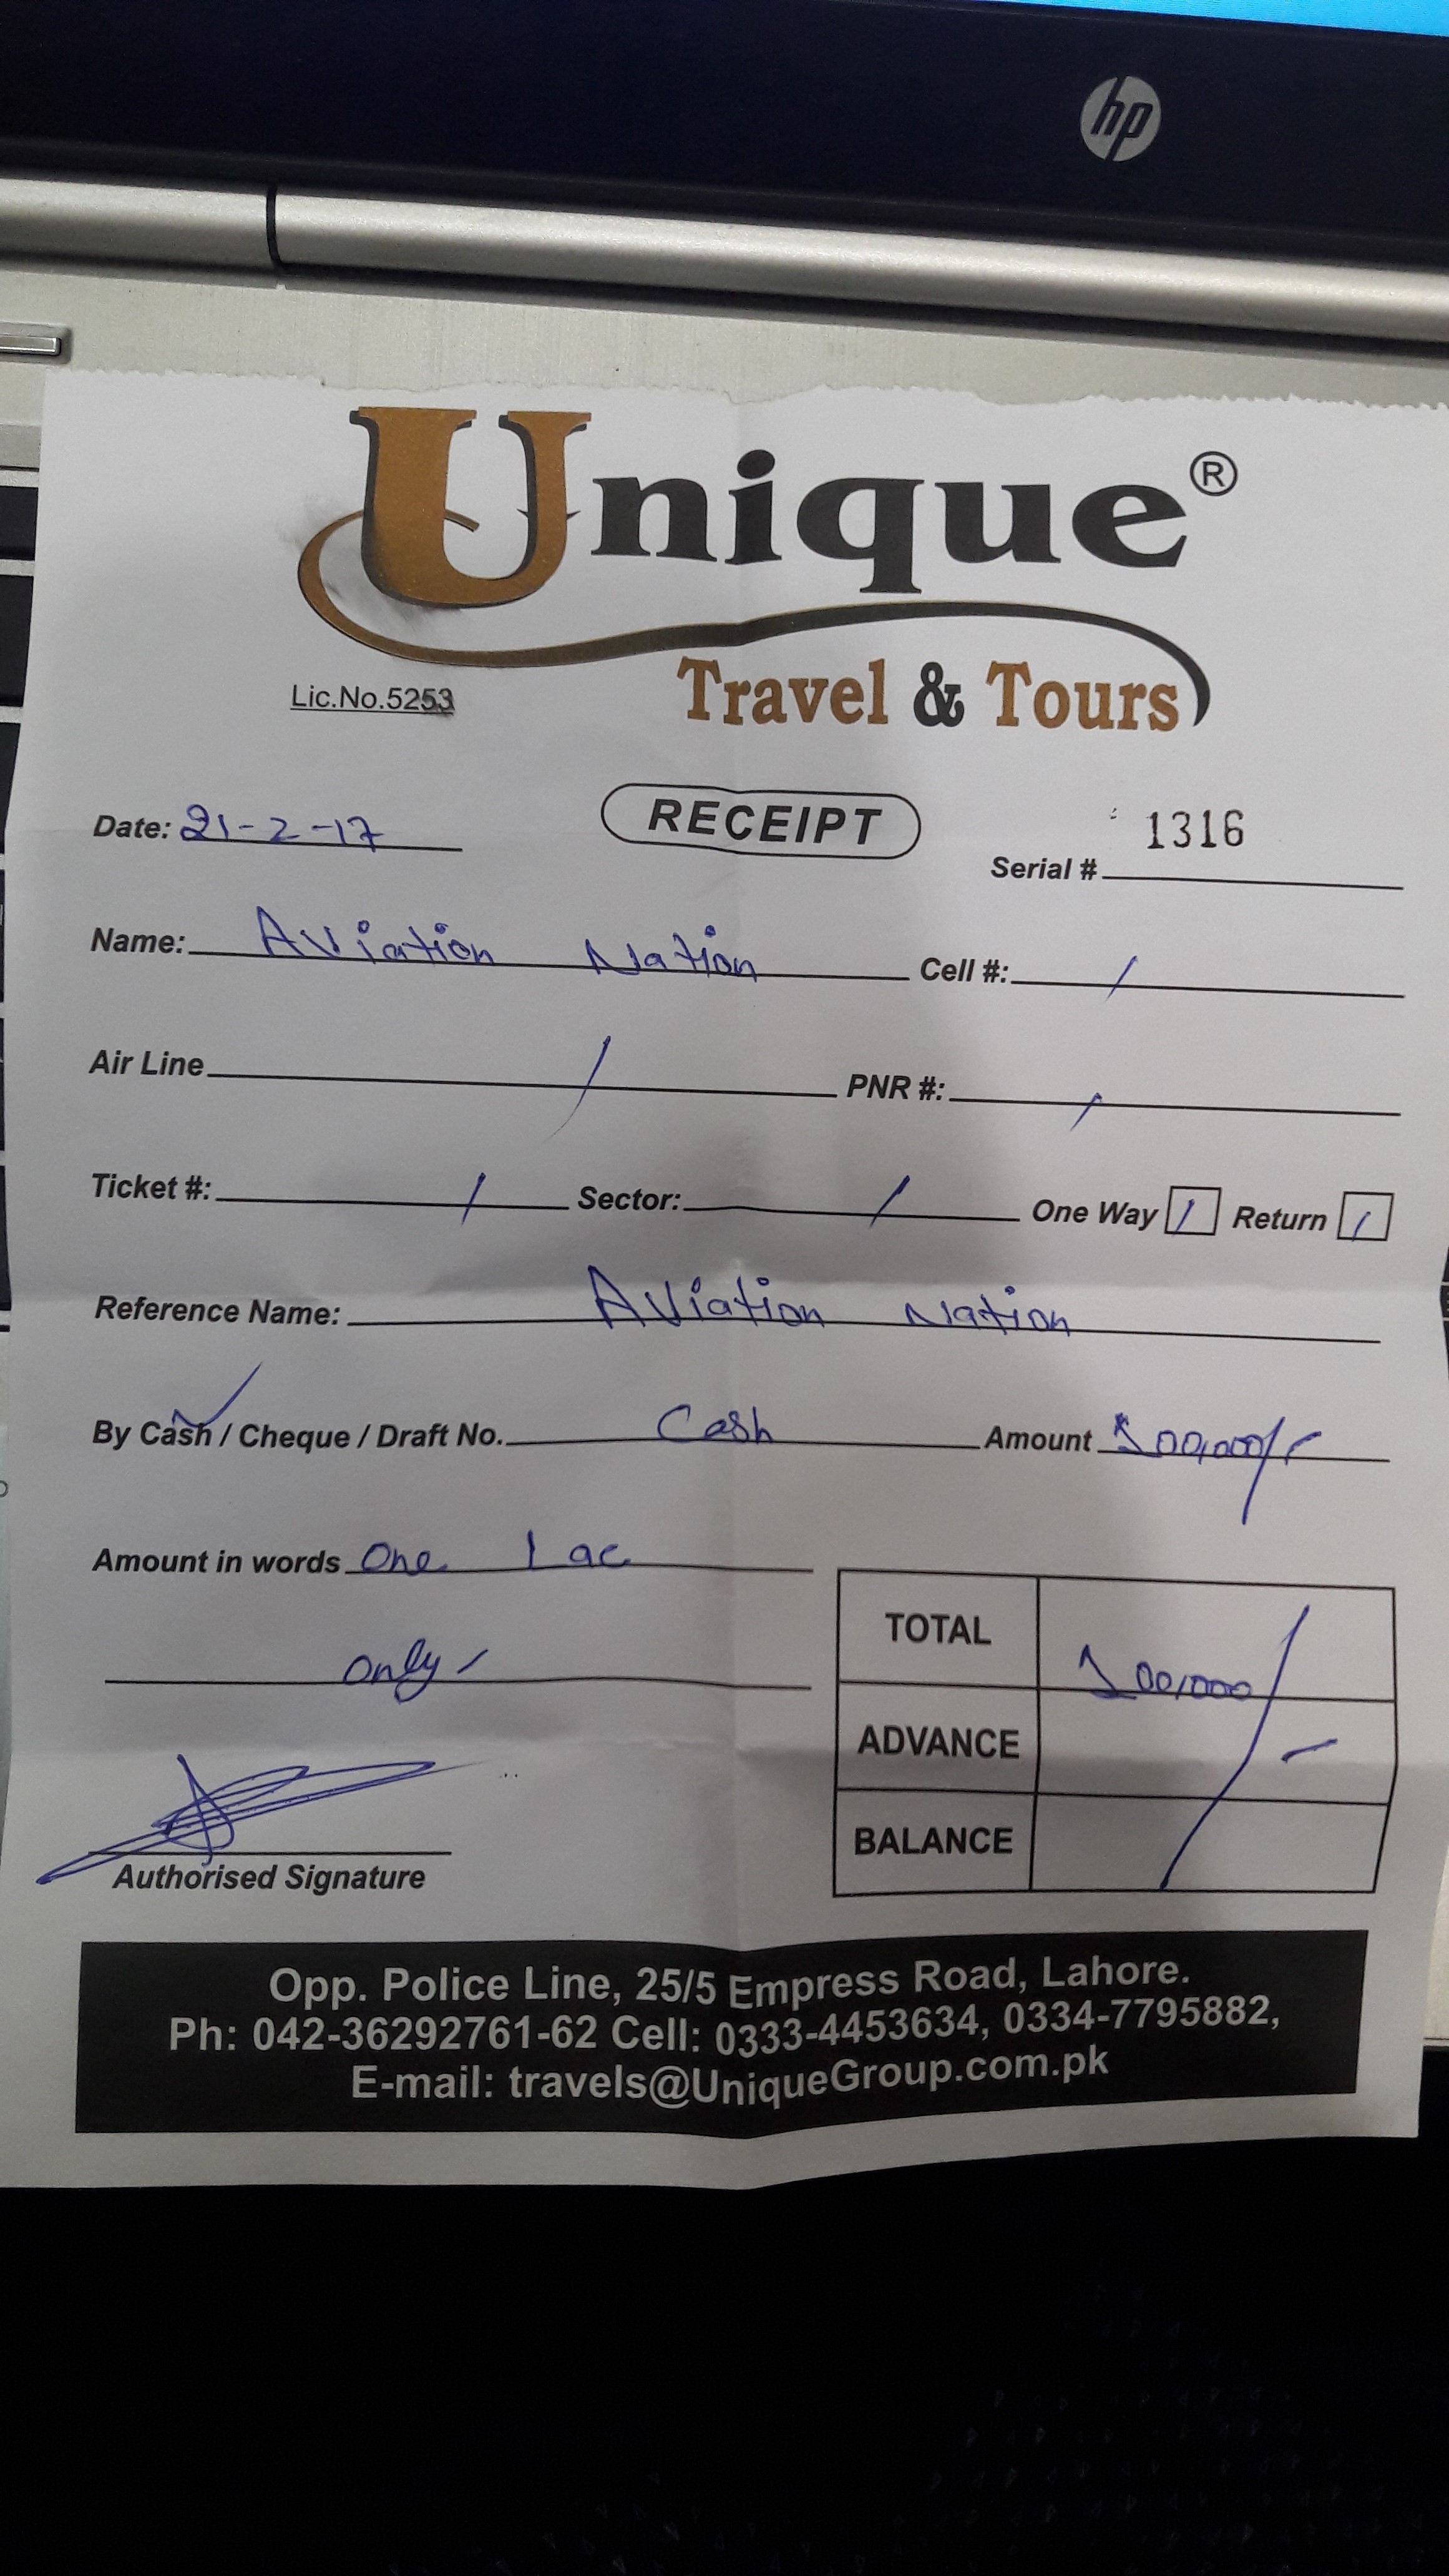 hp
Unique®
Travel & Tours
Lic.No.5253
RECEIPT
Date: 21-2-17 Serial # 1316
Name: Aviation Nation Cell #: /
Air Line / PNR #: /
Ticket #: / Sector: / One Way / Return /
Reference Name: Aviation Nation
By Cash / Cheque / Draft No. Cash Amount 100,000/-
Amount in words One Lac
only
TOTAL 100,000/-
ADVANCE
BALANCE
Authorised Signature
Opp. Police Line, 25/5 Empress Road, Lahore.
Ph: 042-36292761-62 Cell: 0333-4453634, 0334-7795882,
E-mail: travels@UniqueGroup.com.pk